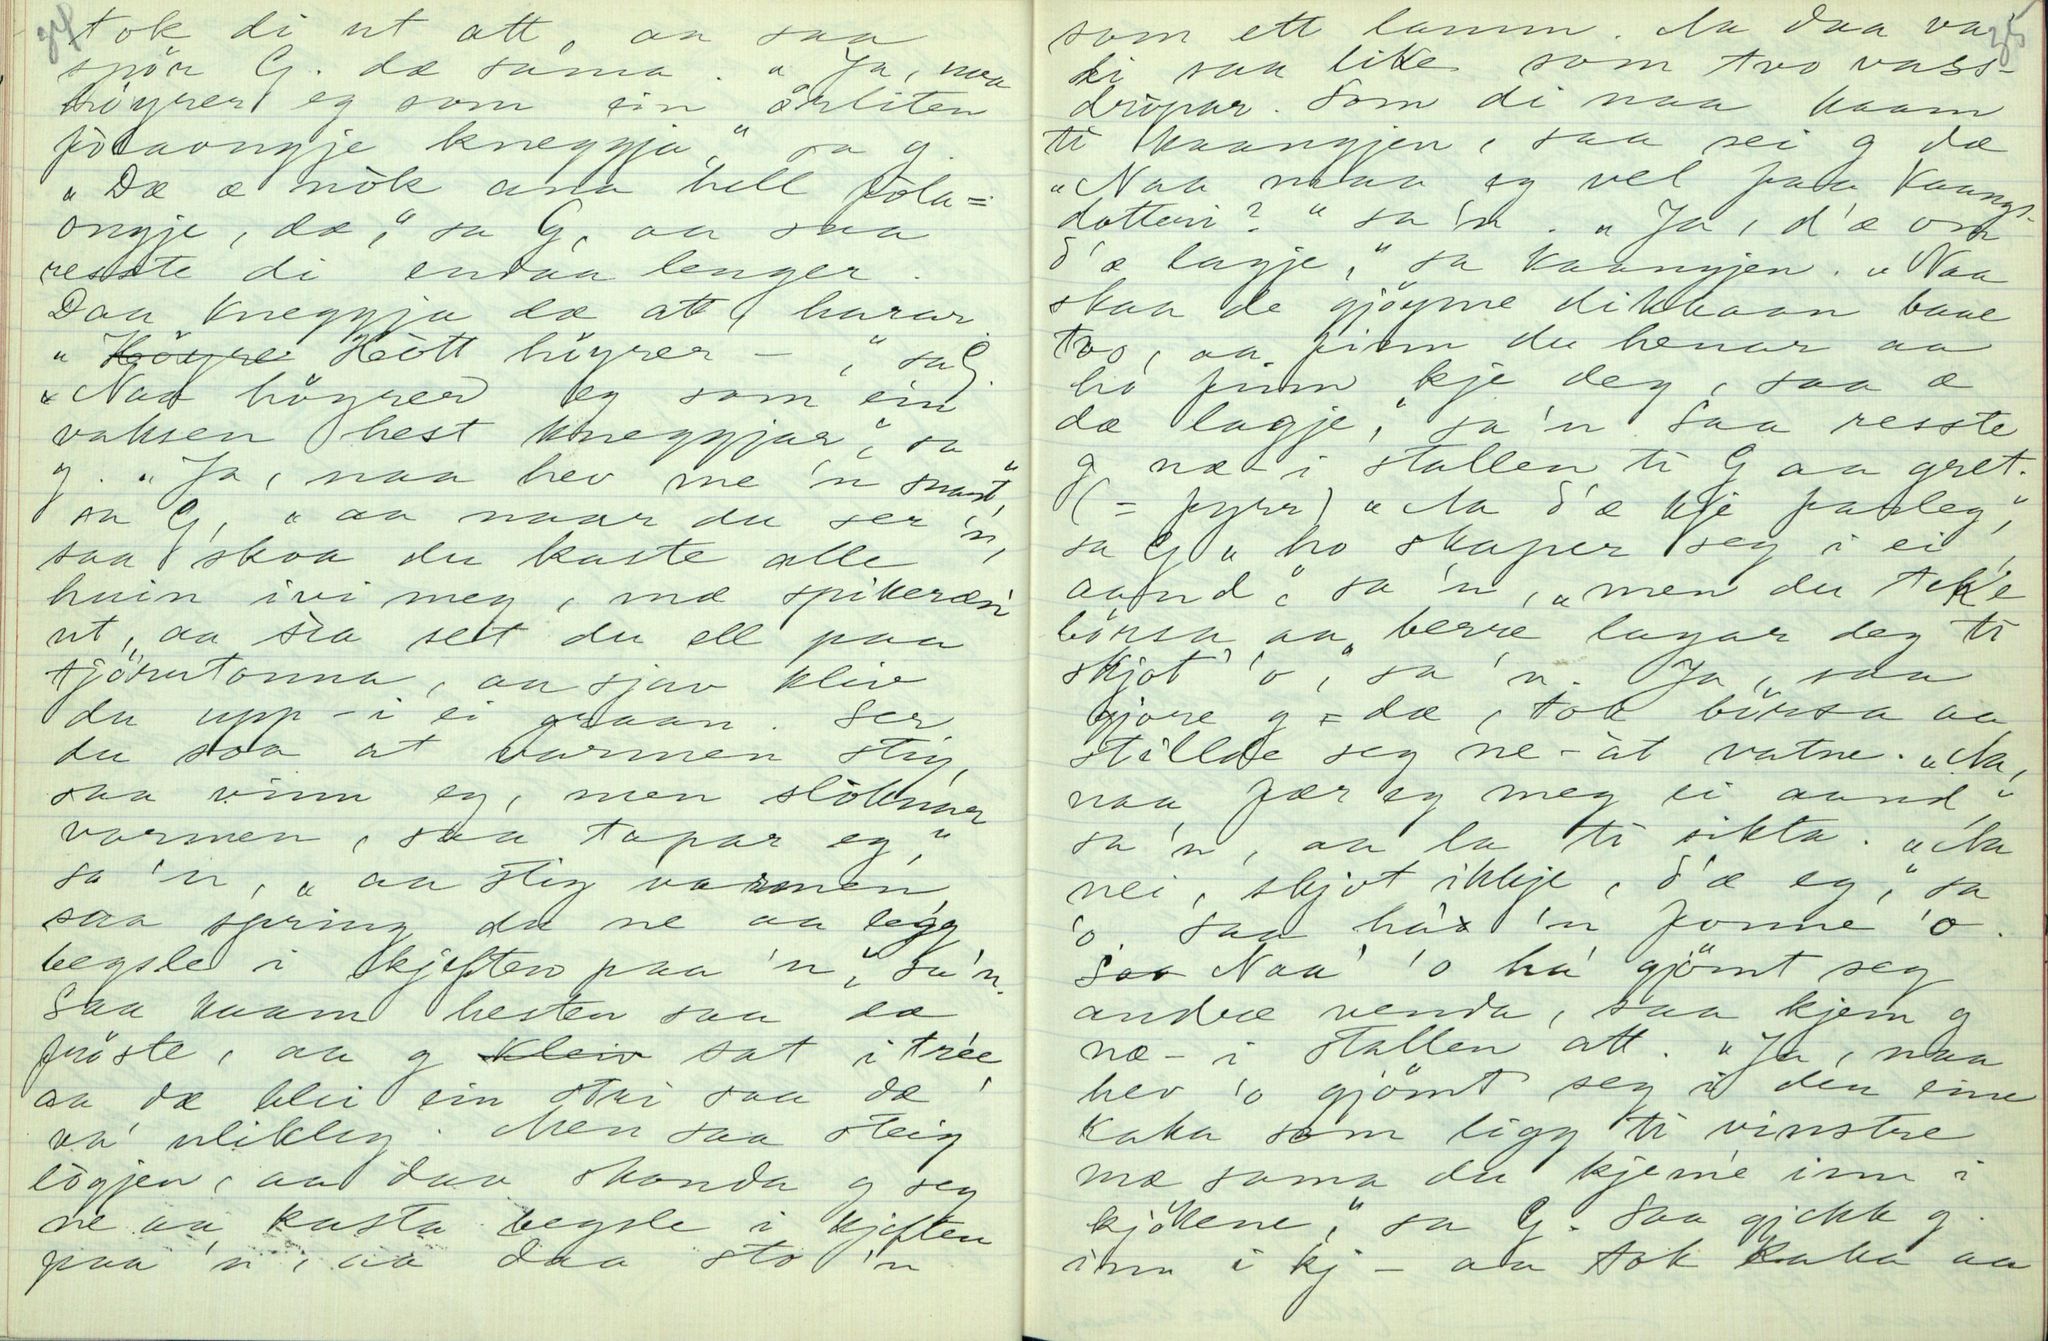 34
tok di ut att, aa saa
spör G. dæ sama. „Ja, naa
höyrer eg som ein örliten
fòlaongje kneggja" sa g.
„Dæ æ nòk ana hell fòla=
ongje, dæ," sa G, aa saa
resste di endaa lenger.
Daa kneggja dæ att, harar.
„Höyre Hòtt höyrer –," sa G.
„Naa höyrer eg som ein
vaksen hest kneggjar," sa
g. „Ja, naa hev me 'n snart,"
sa G, „aa naar du ser 'n,
saa skaa du kaste alle
huin ivi meg, mæ spikeræn
ut, aa sia set du ell paa
tjörutonna, aa sjav kliv
du upp-i ei graan. Ser
du saa at varmen stig,
saa vinn eg, men slòknar
varmen, saa tapar eg,"
sa 'n, „aa stig varmen,
saa spring du ne aa legg
begsle i kjeften paa 'n," sa 'n.
Saa kaam hesten saa dæ
fröste, aa g kleiv sat i tree,
aa dæ blei ein stri saa dæ
va' ulikleg. Men saa steig
lògjen, aa daa skonda g seg
ne aa kasta begsle i kjeften
paa 'n, aa daa sto 'n
35
som ett lamm. Aa daa va
di saa like som tvo vass-
dròpar. Som di naa kaam
ti kaangjen, saa sei g dæ
„Naa maa eg vel faa kaangs-
dotteri?" sa 'n. „Ja, d'æ om
d'æ lagje," sa kaangjen. „Naa
skaa de gjöyme dikkaan baae
tvo, aa finn du henar aa
ho finn kje deg, saa æ
dæ lagje," sa 'n. Saa resste
g næ-i stallen ti G aa gret.
(= fyrr) „Aa d'æ kje farleg,"
sa G „ho skaper seg i ei
aand," sa 'n, „men du tek'e
börsa aa berre lagar deg ti
skjot 'o," sa 'n. Ja, saa
gjore g = dæ, tok börsa aa
stillde seg ne-àt vatne. „Aa,
naa fær eg meg ei aand,"
sa 'n, aa la ti sikta. „Aa
nei, skjot ikkje, d'æ eg," sa
'o. Saa ha' 'n fonne 'o.
Saa Naa' 'o ha' gjömt seg
andre venda, saa kjem g
næ-i stallen att. „Ja, naa
hev 'o gjömt seg i den eine
kaka som ligg ti vinstre
mæ sama du kjem'e inn i
kjökene," sa G. Saa gjekk g.
inn i kj – aa tok kaka aa